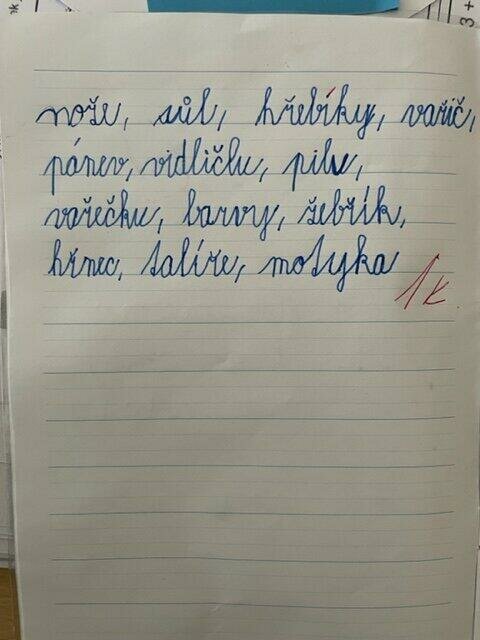 nože, sůl, hřebíky, vařič,
pánev, vidličku, pilu,
vařečku, barvy, žebřík,
hrnec, talíře, motyka
1k